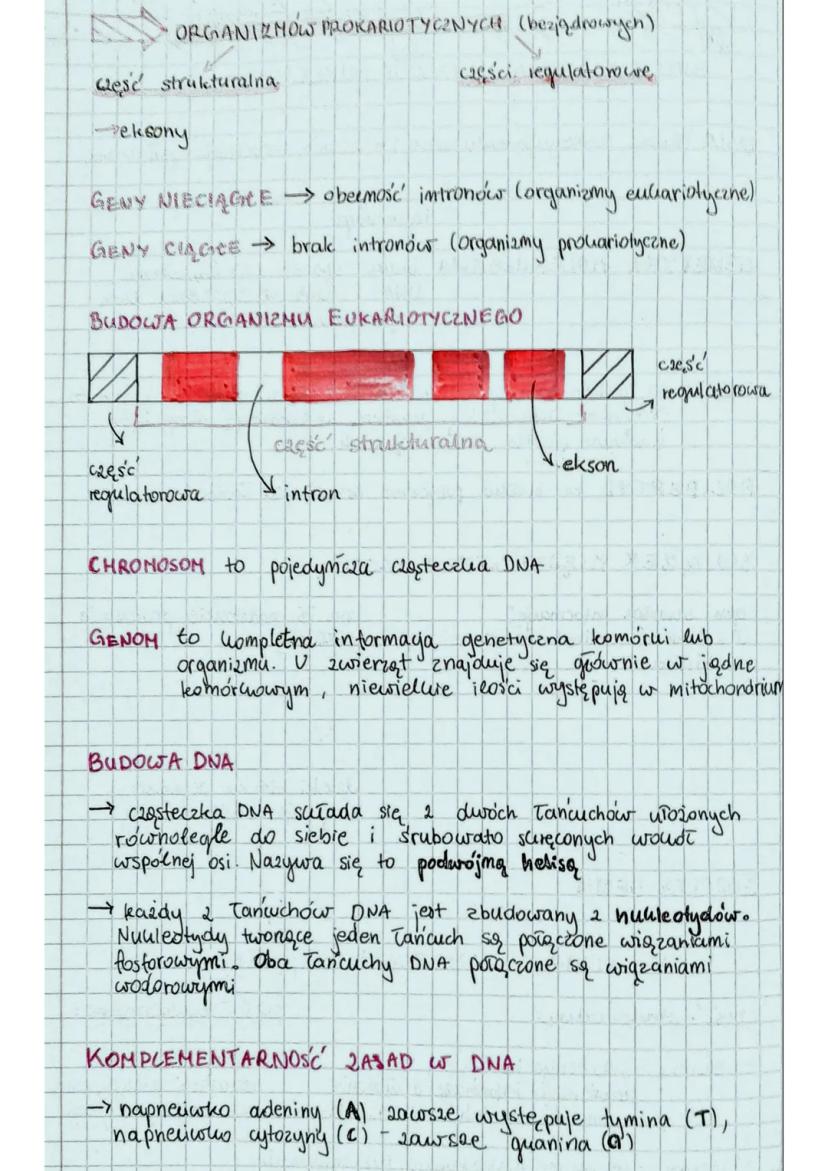 ORGANIZMÓW PROKARIOTYCZNYCH (bezjądrowych)
część strukturalna
części regulatorowe
→ eksony
GENY NIECIĄGŁE → obecność intronów (organizmy eukariotyczne)
GENY CIĄGŁE → brak intronów (organizmy prokariotyczne)
BUDOWA ORGANIZMU EUKARIOTYCZNEGO
część
regulatorowa
część strukturalna
część
regulatorowa
intron
ekson
CHROMOSOM to pojedyńcza cząsteczka DNA
GENOM to kompletna informacja genetyczna komórki lub
organizmu. U zwierząt znajduje się głównie w jądrze
komórkowym, niewielkie ilości występują w mitochondrium
BUDOWA DNA
→ cząsteczka DNA składa się z dwóch łańcuchów ułożonych
równolegle do siebie i śrubowato skręconych wokół
wspólnej osi. Nazywa się to podwójną helisą
→ każdy z łańcuchów DNA jest zbudowany z nukleotydów.
Nukleotydy tworzące jeden łańcuch są połączone wiązaniami
fosforowymi. Oba łańcuchy DNA połączone są wiązaniami
wodorowymi
KOMPLEMENTARNOŚĆ ZASAD W DNA
→ naprzeciwko adeniny (A) zawsze występuje tymina (T),
naprzeciwko cytozyny (C) - zawsze guanina (G)